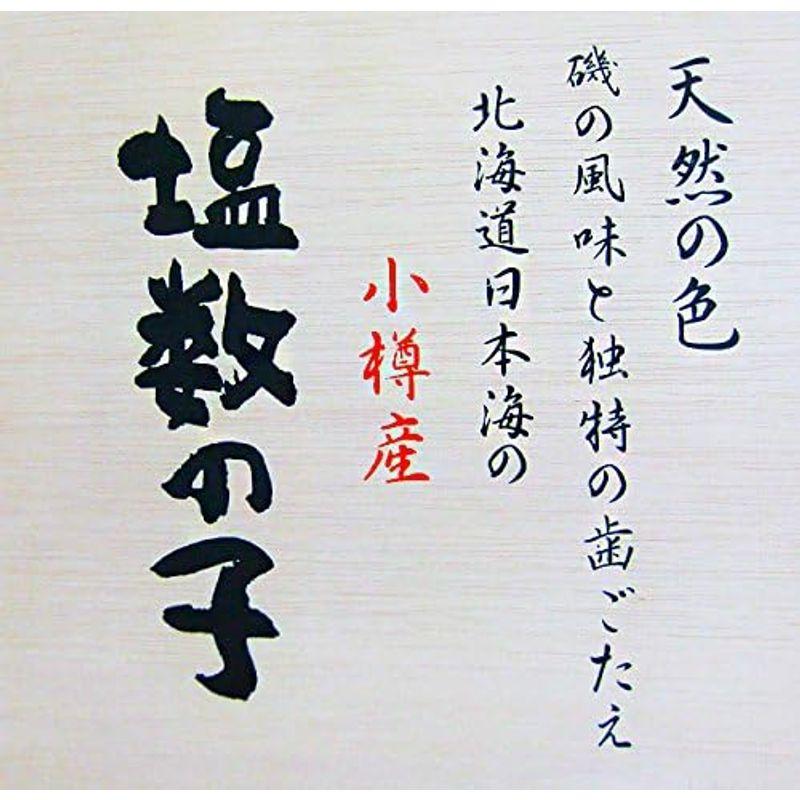 天然の色
磯の風味と独特の歯ごたえ
北海道日本海の
小樽産
塩数の子